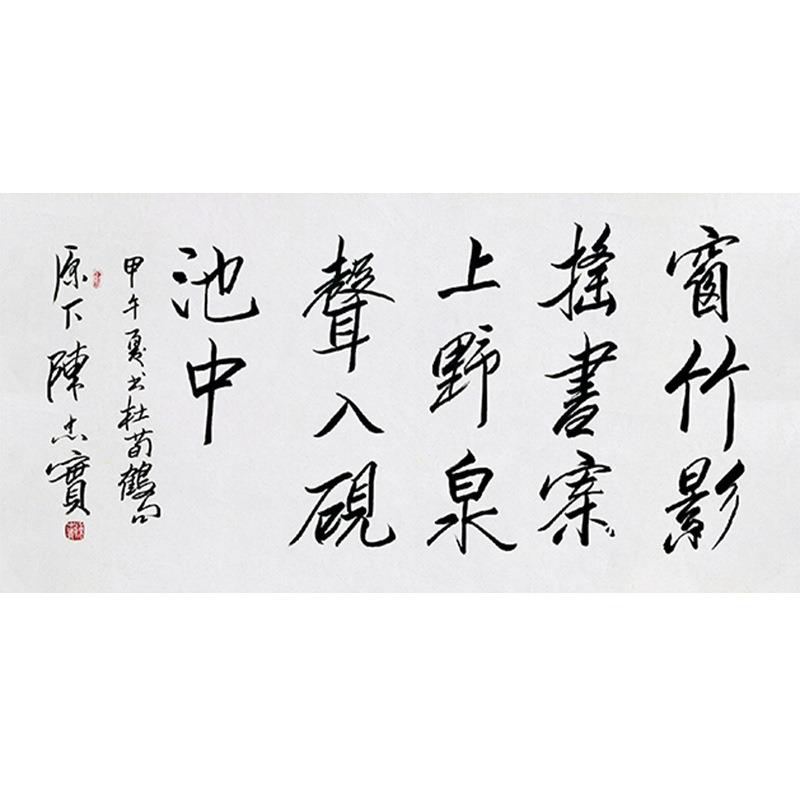 窗竹影
搖書案
上野泉
聲入硯
池中
甲午夏書杜荀鶴句
原下陳忠實